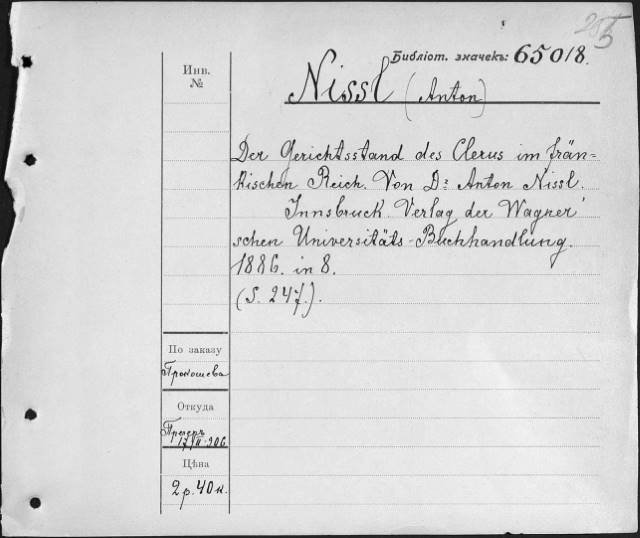 Библіот. значекъ: 650/8.
Инв. №
Nissl (Anton)
Der Gerichtsstand des Clerus im frän-
kischen Reich. Von Dr Anton Nissl.
Innsbruck. Verlag der Wagner'
schen Universitäts-Buchhandlung.
1886. in 8.
(S. 247.).
По заказу
Прокошева
Откуда
17/II 906
Цѣна
2 р. 40 к.